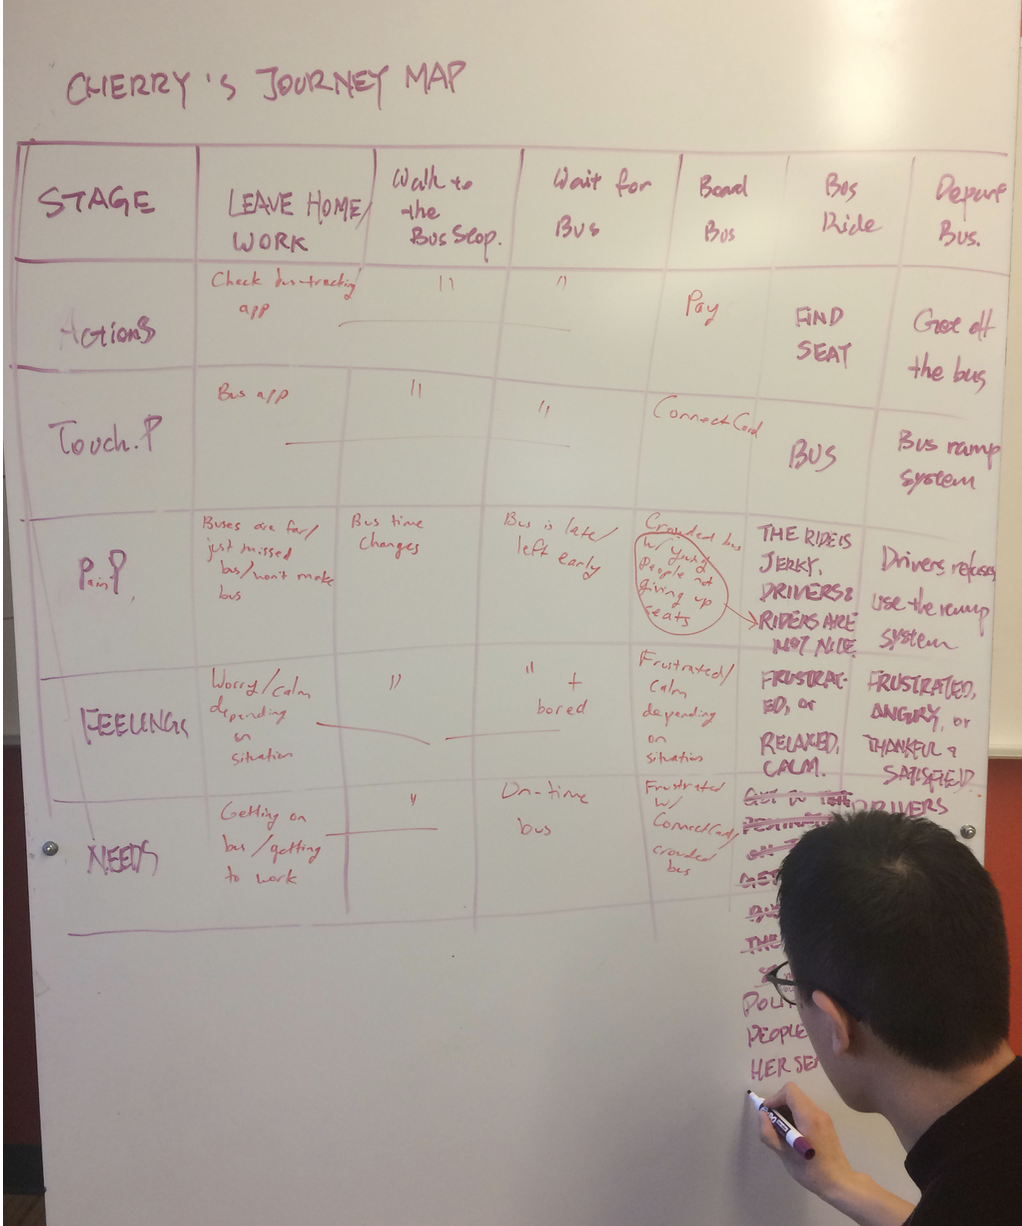 CHERRY'S JOURNEY MAP
STAGE
LEAVE HOME/
WORK
Walk to
the
Bus Stop.
Wait for
Bus
Board
Bus
Bus
Ride
Depart
Bus.
Actions
Check bus-tracking
app
"
"
Pay
FIND
SEAT
Get off
the bus
Touch.P
Bus app
"
"
ConnectCard
BUS
Bus ramp
system
Pain P.
Buses are far/
just missed
bus/won't make
bus
Bus time
changes
Bus is late/
left early
Crowded bus
w/ young
people not
giving up
seats
THE RIDE IS
JERKY.
DRIVERS &
RIDERS ARE
NOT NICE
Drivers refuses
use the ramp
system
FEELINGS
Worry/calm
depending
on
situation
"
" +
bored
Frustrated/
calm
depending
on
situation
FRUSTRAT-
ED, or
RELAXED,
CALM.
FRUSTRATED,
ANGRY, or
THANKFUL &
SATISFIED
NEEDS
Getting on
bus/getting
to work
"
On-time
bus
Frustrated
w/
ConnectCard/
crowded
bus
GET TO THE
ON
GET
THE
PEOPLE
HER
DRIVERS